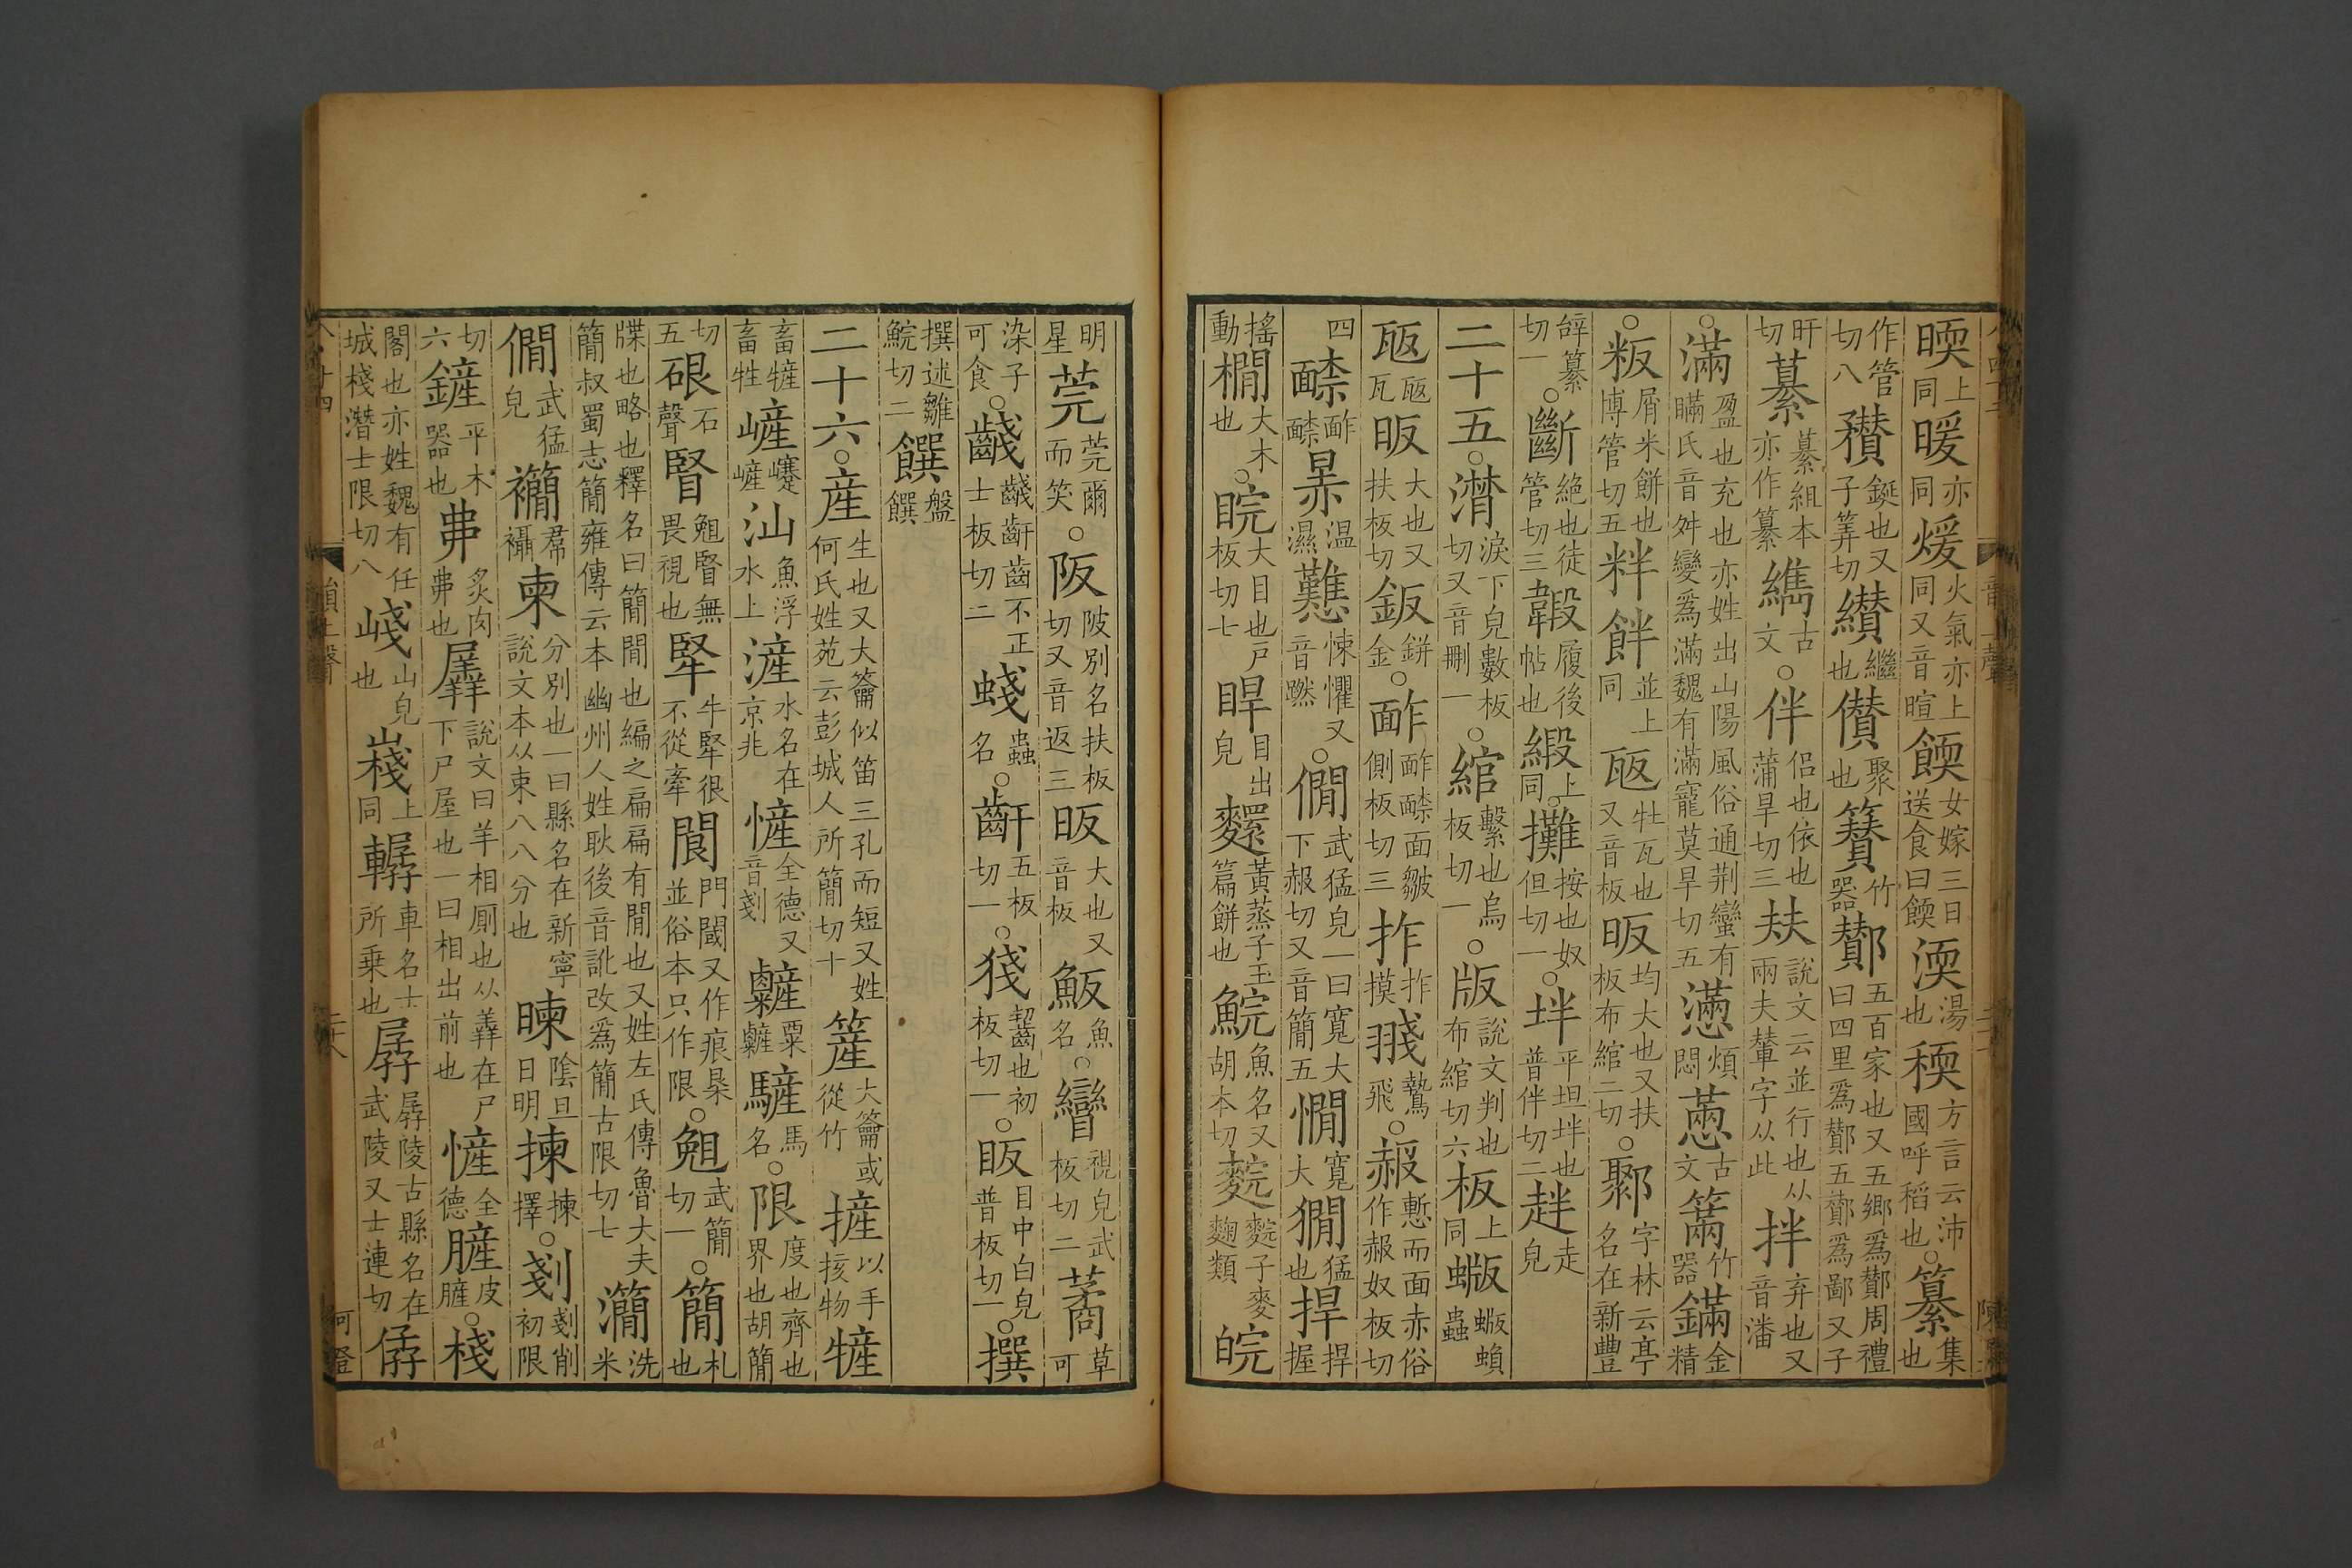 㬉上同暖亦同煖火氣亦上同又音暄餪女嫁三日送食曰餪渜湯也稬方言云沛國呼稻也○纂集也
作管切八穳鋋也又子筭切纘繼也儹聚也籫竹器酇五百家也又五鄉爲酇周禮曰四里爲酇五酇爲鄙又子
旰切纂纂組本亦作纂䌪古文○伴侶也依也蒲旱切三㚘說文云並行也从兩夫輦字从此拌弃也又音潘
○滿盈也充也亦姓出山陽風俗通荆蠻有瞞氏音舛變爲滿魏有滿寵莫旱切五懣煩悶𢞞古文䈎竹器鏋金精
○粄屑米餅也博管切五䉽䬳並上同瓪牡瓦也又音板昄均大也又扶板布綰二切○鄹字林云亭名在新豐
辝纂切一○斷絶也徒管切三䪝履後帖也緞上同○攤按也奴但切一○坢平坦坢也普伴切二䟺走皃
二十五○潸淚下皃數板切又音刪一○綰繫也烏板切一○版說文判也布綰切六板上同蝂蝜蝂蟲
瓪瓪瓦昄大也又扶板切鈑鉼金○䩆䩆䩋面皺側板切三拃拃摸䎒鷙飛○赧慙而面赤俗作赧奴板切
四䩋䩆䩋㬮温濕戁悚懼又音蹨○僩武猛皃一曰寬大下赧切又音簡五憪寬大獷猛也捍捍握
搖動橺大木也○睆大目也戸板切七睅目出皃䴉黃蒸子玉篇餅也鯇魚名又胡本切䴷䴷子麥麴類皖
明星莞莞爾而笑○阪陂別名扶板切又音返三昄大也又音板魬魚名○矕視皃武板切二䕕草可
染子可食○齴齴齖齒不正士板切二虥蟲名○齗五板切一○㹽齧也初板切一○眅目中白皃普板切一○撰
撰述雛鯇切二饌盤饌
二十六○産生也又大籥似笛三孔而短又姓何氏姓苑云彭城人所簡切十簅大籥或從竹摌以手㧡物㹌
畜㹌畜牲嵼㠾嵼汕魚浮水上滻水名在京兆㦃全德又音剗𪎲粟𪎲驏馬名○限度也齊也界也胡簡
切五硍石聲䁂䰎䁂無畏視也掔牛掔很不從牽閬門閾又作痕㮓並俗本只作限○䰎武簡切一○簡札也
牒也略也釋名曰簡閒也編之扁扁有閒也又姓左氏傳魯大夫簡叔蜀志簡雍傳云本幽州人姓耿後音訛改爲簡古限切七𤄒洗米
僩武猛皃襺帬襵柬分別也一曰縣名在新寧說文本从束八八分也暕陰旦日明揀揀擇○剗剗削初限
切六鏟平木器也丳炙肉丳也羼說文曰羊相厠也从羴在尸下尸屋也一曰相出前也㦃全德𦠳皮𦠳○棧
閣也亦姓魏有任城棧潛士限切八㟞山皃也嶘上同轏車名士所乗也孱孱陵古縣名在武陵又士連切僝